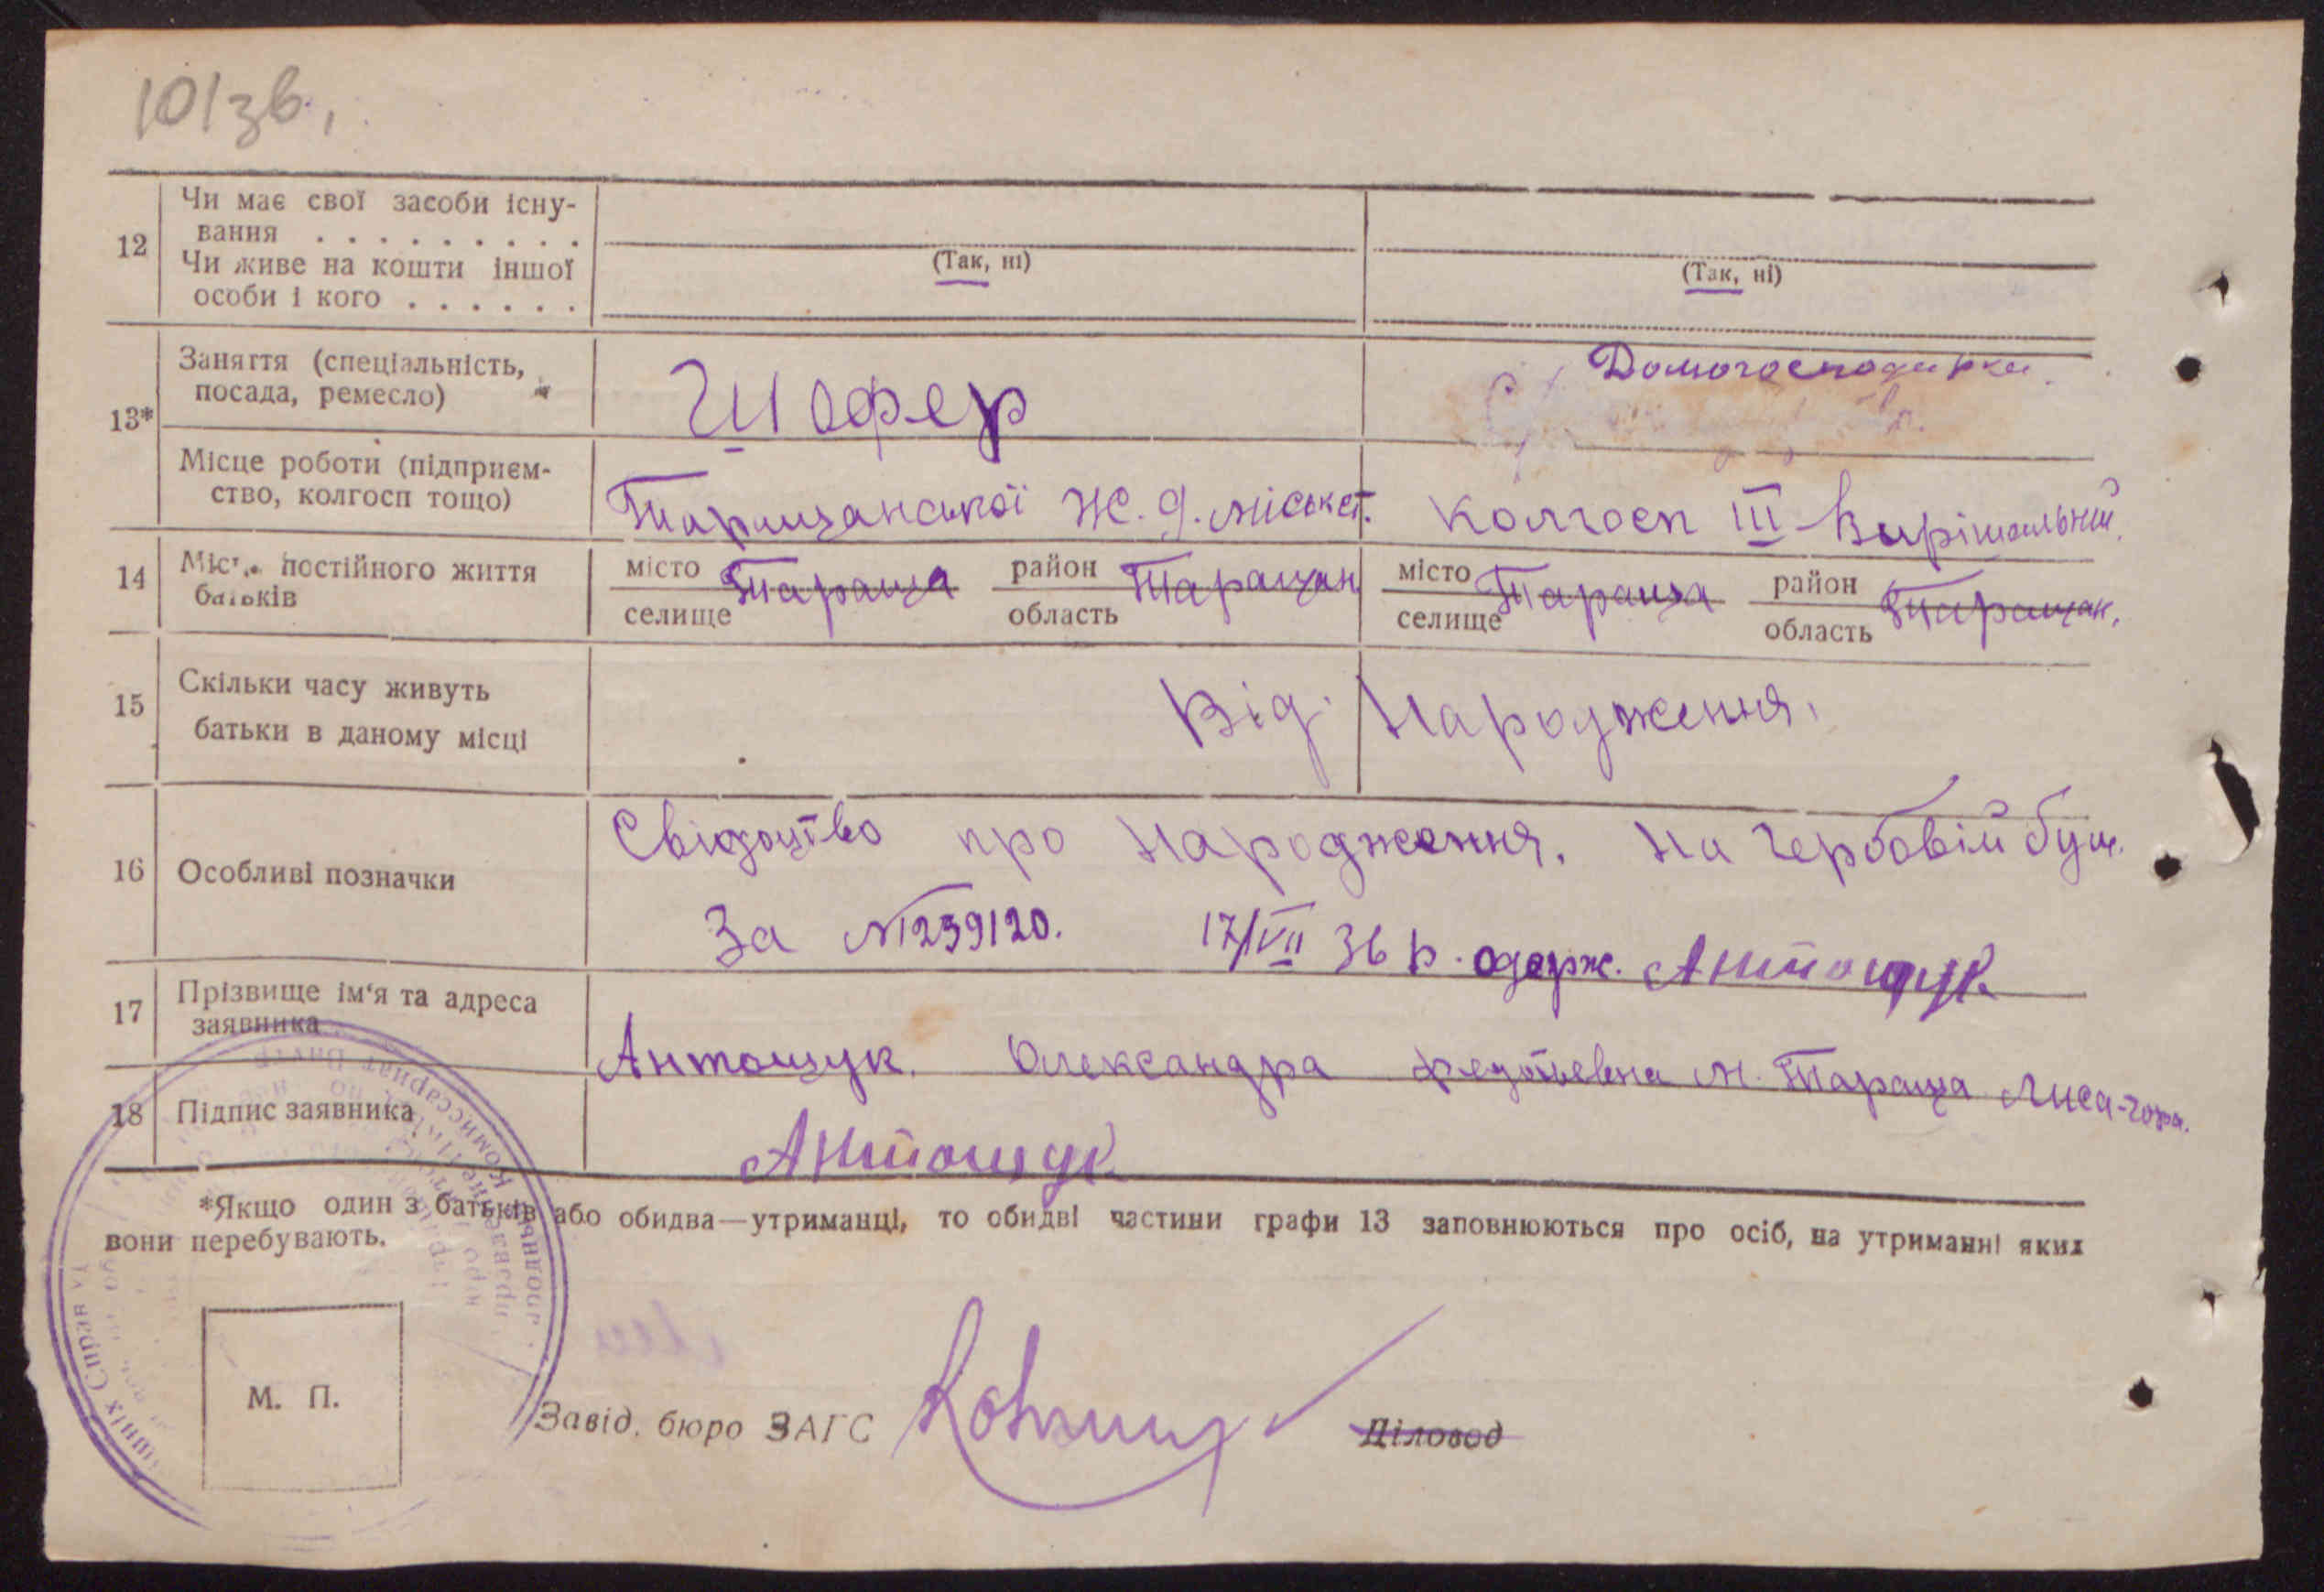 101зв.
12 Чи має свої засоби існу-
вання . . . . . . . . .
Чи живе на кошти іншої
особи і кого . . . . . .
(Так, ні) (Так, ні)
13* Заняття (спеціальність,
посада, ремесло)
Шофер Домогосподирка
Місце роботи (підприєм-
ство, колгосп тощо)
Таращанської Ж. д. Колгосп III Вирішальний
14 постійного життя
батьків
місто Тараща район Таращан місто Тараща район Таращан.
селище область селище область
15 Скільки часу живуть
батьки в даному місці
Від Народження.
16 Особливі позначки
Свідоцтво про Народження. На Гербовім бум.
За №239120. 17/VII 36 р. одерж. Антощук
17 Прізвище ім'я та адреса
заявника
Антощук Олександра М. Тараща Лиса-гора.
18 Підпис заявника
Антощук
*Якщо один з батьків або обидва—утриманці, то обидві частини графи 13 заповнюються про осіб, на утриманні яких
вони перебувають.
М. П.
Завід. бюро ЗАГС Діловод